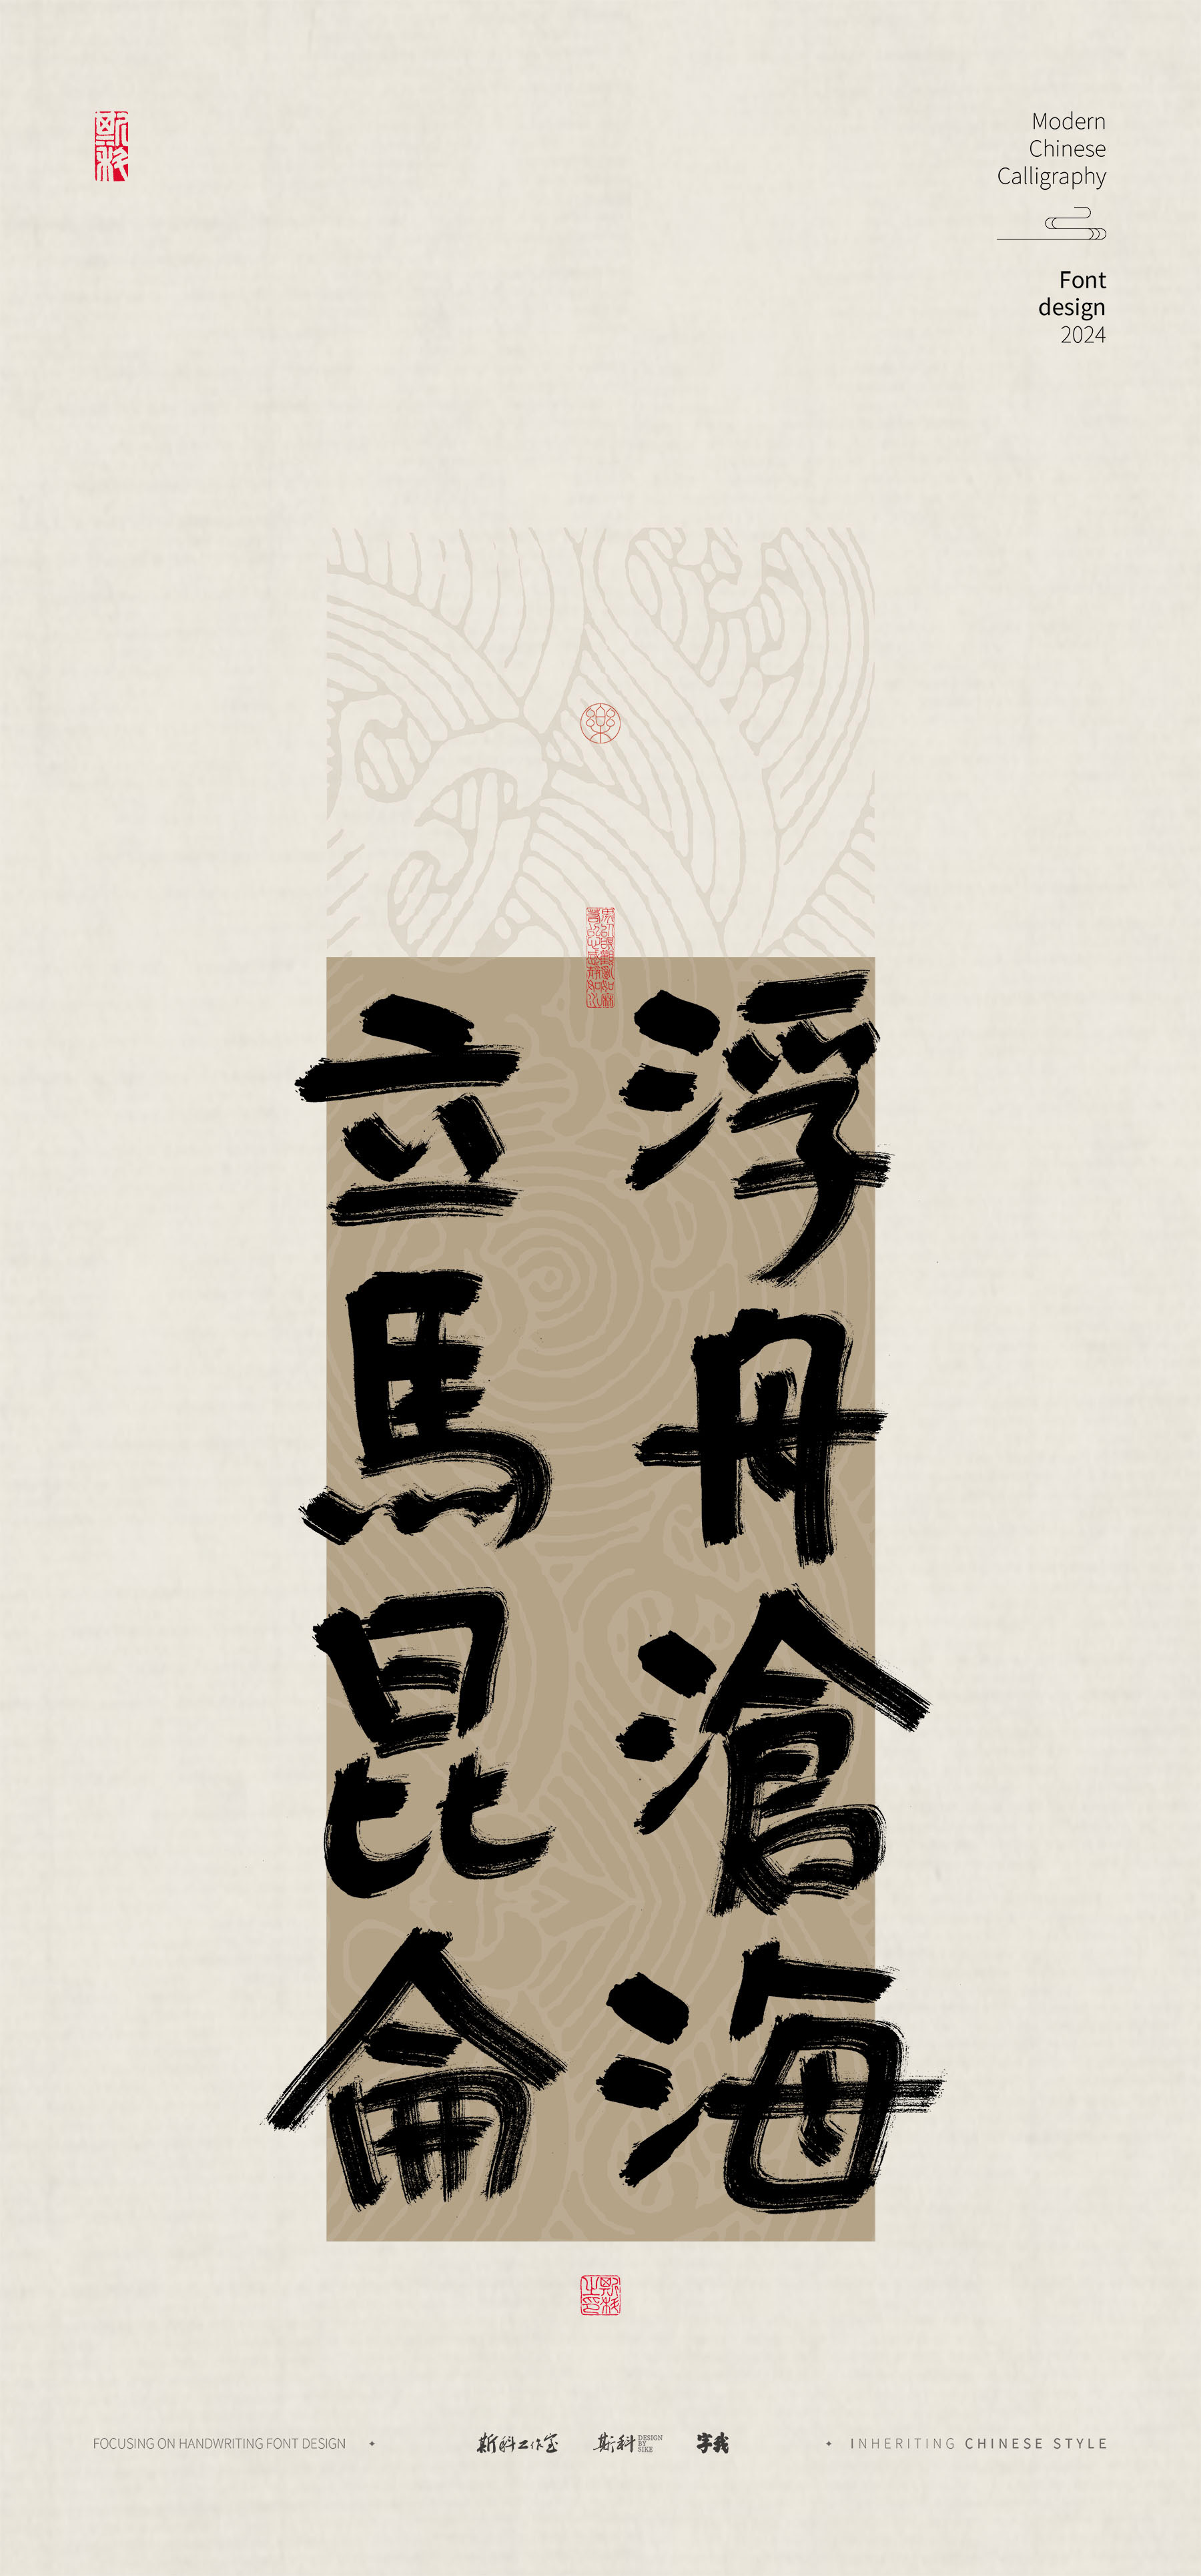 斯科
Modern
Chinese
Calligraphy
Font
design
2024
浮舟滄海
立馬昆侖
斯科之印
FOCUSING ON HANDWRITING FONT DESIGN
斯科工作室
斯科
DESIGN
BY
SIKE
字我
INHERITING CHINESE STYLE